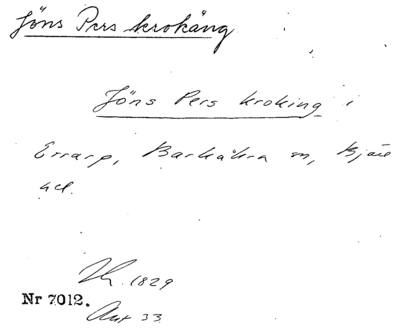 Jöns Pers krokäng
Jöns Pers kroking i
Errarp, Barkåkra sn, Bjäre
hd.
Th. 1829
Nr 7012.
Ant 33